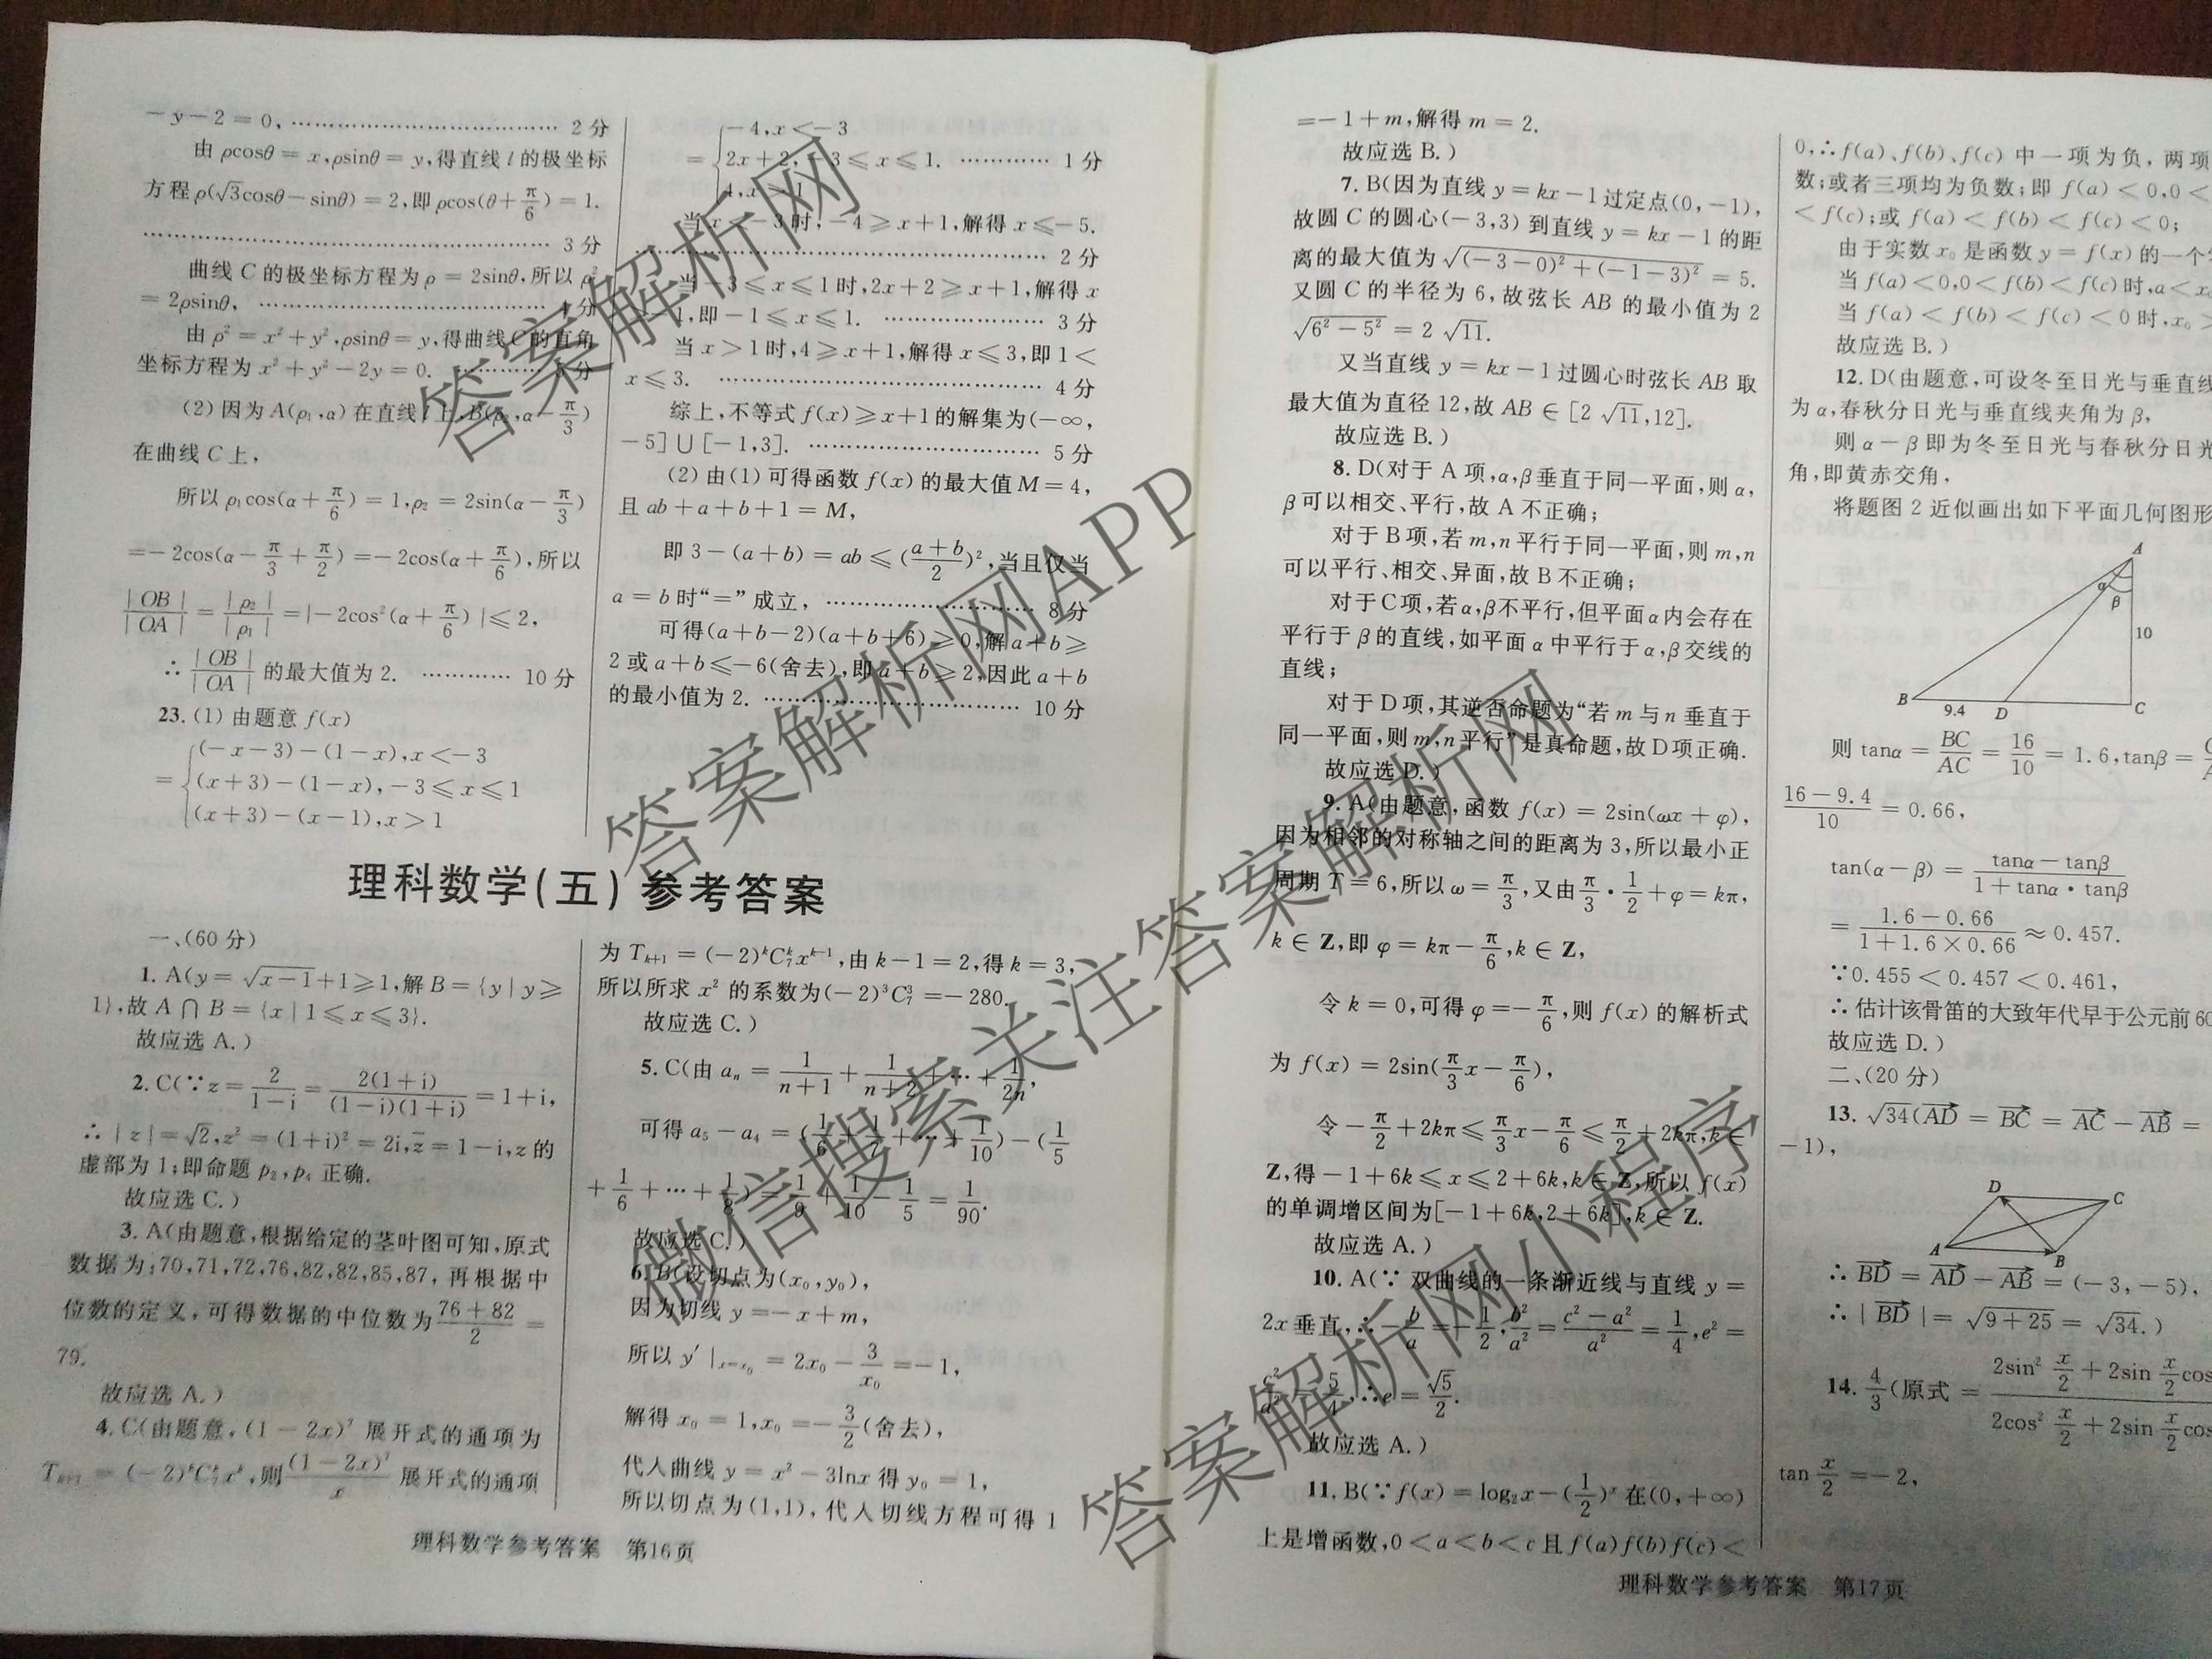 －y－2＝0，…… 2分
由ρcosθ＝x,ρsinθ＝y,得直线l的极坐标
方程ρ(√3cosθ－sinθ)＝2,即ρcos(θ＋π/6)＝1.
…… 3分
曲线C的极坐标方程为ρ＝2sinθ,所以ρ²
＝2ρsinθ, …… 4分
由ρ²＝x²＋y²,ρsinθ＝y,得曲线C的直角
坐标方程为x²＋y²－2y＝0. …… 分
(2)因为A(ρ₁,α)在直线l上,B(ρ₂,α－π/3)
在曲线C上,
所以ρ₁cos(α＋π/6)＝1,ρ₂＝2sin(α－π/3)
＝－2cos(α－π/3＋π/2)＝－2cos(α＋π/6),所以
|OB|/|OA|＝|ρ₂|/|ρ₁|＝|－2cos²(α＋π/6)|≤2,
∴|OB|/|OA|的最大值为2. …… 10分
23.(1)由题意f(x)
＝{(－x－3)－(1－x),x＜－3
(x＋3)－(1－x),－3≤x≤1
(x＋3)－(x－1),x＞1
－4,x＜－3
＝{2x＋2,－3≤x≤1. …… 1分
4,x＞1
当x＜－3时,－4≥x＋1,解得x≤－5.
…… 2分
当－3≤x≤1时,2x＋2≥x＋1,解得x
1,即－1≤x≤1. …… 3分
当x＞1时,4≥x＋1,解得x≤3,即1＜
x≤3. …… 4分
综上,不等式f(x)≥x＋1的解集为(－∞,
－5]∪[－1,3]. …… 5分
(2)由(1)可得函数f(x)的最大值M＝4,
且ab＋a＋b＋1＝M,
即3－(a＋b)＝ab≤((a＋b)/2)²,当且仅当
a＝b时“＝”成立, …… 8分
可得(a＋b－2)(a＋b＋6)≥0,解a＋b≥
2或a＋b≤－6(舍去),即a＋b≥2,因此a＋b
的最小值为2. …… 10分
理科数学(五)参考答案
一、(60分)
1. A(y＝√(x－1)＋1≥1,解B＝{y|y≥
1},故A∩B＝{x|1≤x≤3}.
故应选A.)
2. C(∵z＝2/(1－i)＝2(1＋i)/((1－i)(1＋i))＝1＋i,
∴|z|＝√2,z²＝(1＋i)²＝2i,z̅＝1－i,z的
虚部为1;即命题p₂,p₄正确.
故应选C.)
3. A(由题意,根据给定的茎叶图可知,原式
数据为:70,71,72,76,82,82,85,87,再根据中
位数的定义,可得数据的中位数为(76＋82)/2＝
79.
故应选A.)
4. C(由题意,(1－2x)⁷展开式的通项为
Tₖ₊₁＝(－2)ᵏC₇ᵏxᵏ,则(1－2x)⁷/x展开式的通项
为Tₖ₊₁＝(－2)ᵏC₇ᵏxᵏ⁻¹,由k－1＝2,得k＝3,
所以所求x²的系数为(－2)³C₇³＝－280.
故应选C.)
5. C(由aₙ＝1/(n＋1)＋1/(n＋2)＋…＋1/2n,
可得a₅－a₄＝(1/6＋1/7＋…＋1/10)－(1/5
＋1/6＋…＋1/8)＝1/9＋1/10－1/5＝1/90.
故应选C.)
6. B(设切点为(x₀,y₀),
因为切线y＝－x＋m,
所以y′|ₓ₌ₓ₀＝2x₀－3/x₀＝－1,
解得x₀＝1,x₀＝－3/2(舍去),
代入曲线y＝x²－3lnx得y₀＝1,
所以切点为(1,1),代入切线方程可得1
理科数学参考答案 第16页
＝－1＋m,解得m＝2.
故应选B.)
7. B(因为直线y＝kx－1过定点(0,－1),
故圆C的圆心(－3,3)到直线y＝kx－1的距
离的最大值为√((－3－0)²＋(－1－3)²)＝5.
又圆C的半径为6,故弦长AB的最小值为2
√(6²－5²)＝2√11.
又当直线y＝kx－1过圆心时弦长AB取
最大值为直径12,故AB∈[2√11,12].
故应选B.)
8. D(对于A项,α,β垂直于同一平面,则α,
β可以相交、平行,故A不正确;
对于B项,若m,n平行于同一平面,则m,n
可以平行、相交、异面,故B不正确;
对于C项,若α,β不平行,但平面α内会存在
平行于β的直线,如平面α中平行于α,β交线的
直线;
对于D项,其逆否命题为“若m与n垂直于
同一平面,则m,n平行”是真命题,故D项正确.
故应选D.)
9. A(由题意,函数f(x)＝2sin(ωx＋φ),
因为相邻的对称轴之间的距离为3,所以最小正
周期T＝6,所以ω＝π/3,又由π/3·1/2＋φ＝kπ,
k∈Z,即φ＝kπ－π/6,k∈Z,
令k＝0,可得φ＝－π/6,则f(x)的解析式
为f(x)＝2sin(π/3x－π/6),
令－π/2＋2kπ≤π/3x－π/6≤π/2＋2kπ,k∈
Z,得－1＋6k≤x≤2＋6k,k∈Z,所以f(x)
的单调增区间为[－1＋6k,2＋6k],k∈Z.
故应选A.)
10. A(∵双曲线的一条渐近线与直线y＝
2x垂直,∴－b/a＝－1/2,b²/a²＝(c²－a²)/a²＝1/4,e²＝
c²/a²＝5/4,∴e＝√5/2.
故应选A.)
11. B(∵f(x)＝log₂x－(1/2)ˣ在(0,＋∞)
上是增函数,0＜a＜b＜c且f(a)f(b)f(c)＜
0,∴f(a)、f(b)、f(c)中一项为负,两项
数;或者三项均为负数;即f(a)＜0,0＜
＜f(c);或f(a)＜f(b)＜f(c)＜0;
由于实数x₀是函数y＝f(x)的一个
当f(a)＜0,0＜f(b)＜f(c)时,a＜x₀
当f(a)＜f(b)＜f(c)＜0时,x₀＞
故应选B.)
12. D(由题意,可设冬至日光与垂直线
为α,春秋分日光与垂直线夹角为β,
则α－β即为冬至日光与春秋分日光
角,即黄赤交角,
将题图2近似画出如下平面几何图形
A
α
β
10
B 9.4 D C
则tanα＝BC/AC＝16/10＝1.6,tanβ＝
(16－9.4)/10＝0.66,
tan(α－β)＝(tanα－tanβ)/(1＋tanα·tanβ)
＝(1.6－0.66)/(1＋1.6×0.66)≈0.457.
∵0.455＜0.457＜0.461,
∴估计该骨笛的大致年代早于公元前60
故应选D.)
二、(20分)
13. √34(AD→＝BC→＝AC→－AB→＝
－1),
D C
A B
∴BD→＝AD→－AB→＝(－3,－5),
∴|BD→|＝√(9＋25)＝√34.)
14. 4/3(原式＝(2sin² x/2＋2sin x/2 cos)/(2cos² x/2＋2sin x/2 cos)
tan x/2＝－2,
理科数学参考答案 第17页
答案解析网
答案解析网APP
微信搜索关注答案解析网
答案解析网小程序